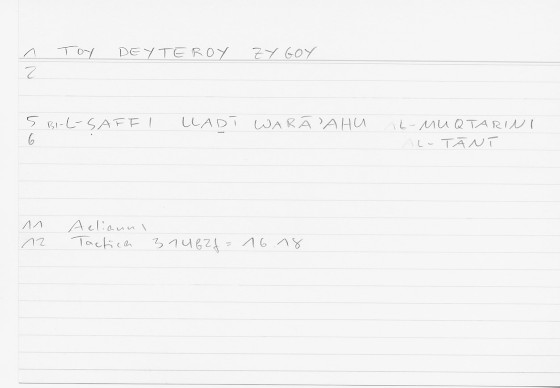 1 TOY DEYTEROY ZYGOY
2
5 BI-L-ṢAFFI LLAḎĪ WARĀʾAHU AL-MUQTARINI
6 AL-ṮĀNĪ
11 Aelianus
12 Tactica 31 = 16 18